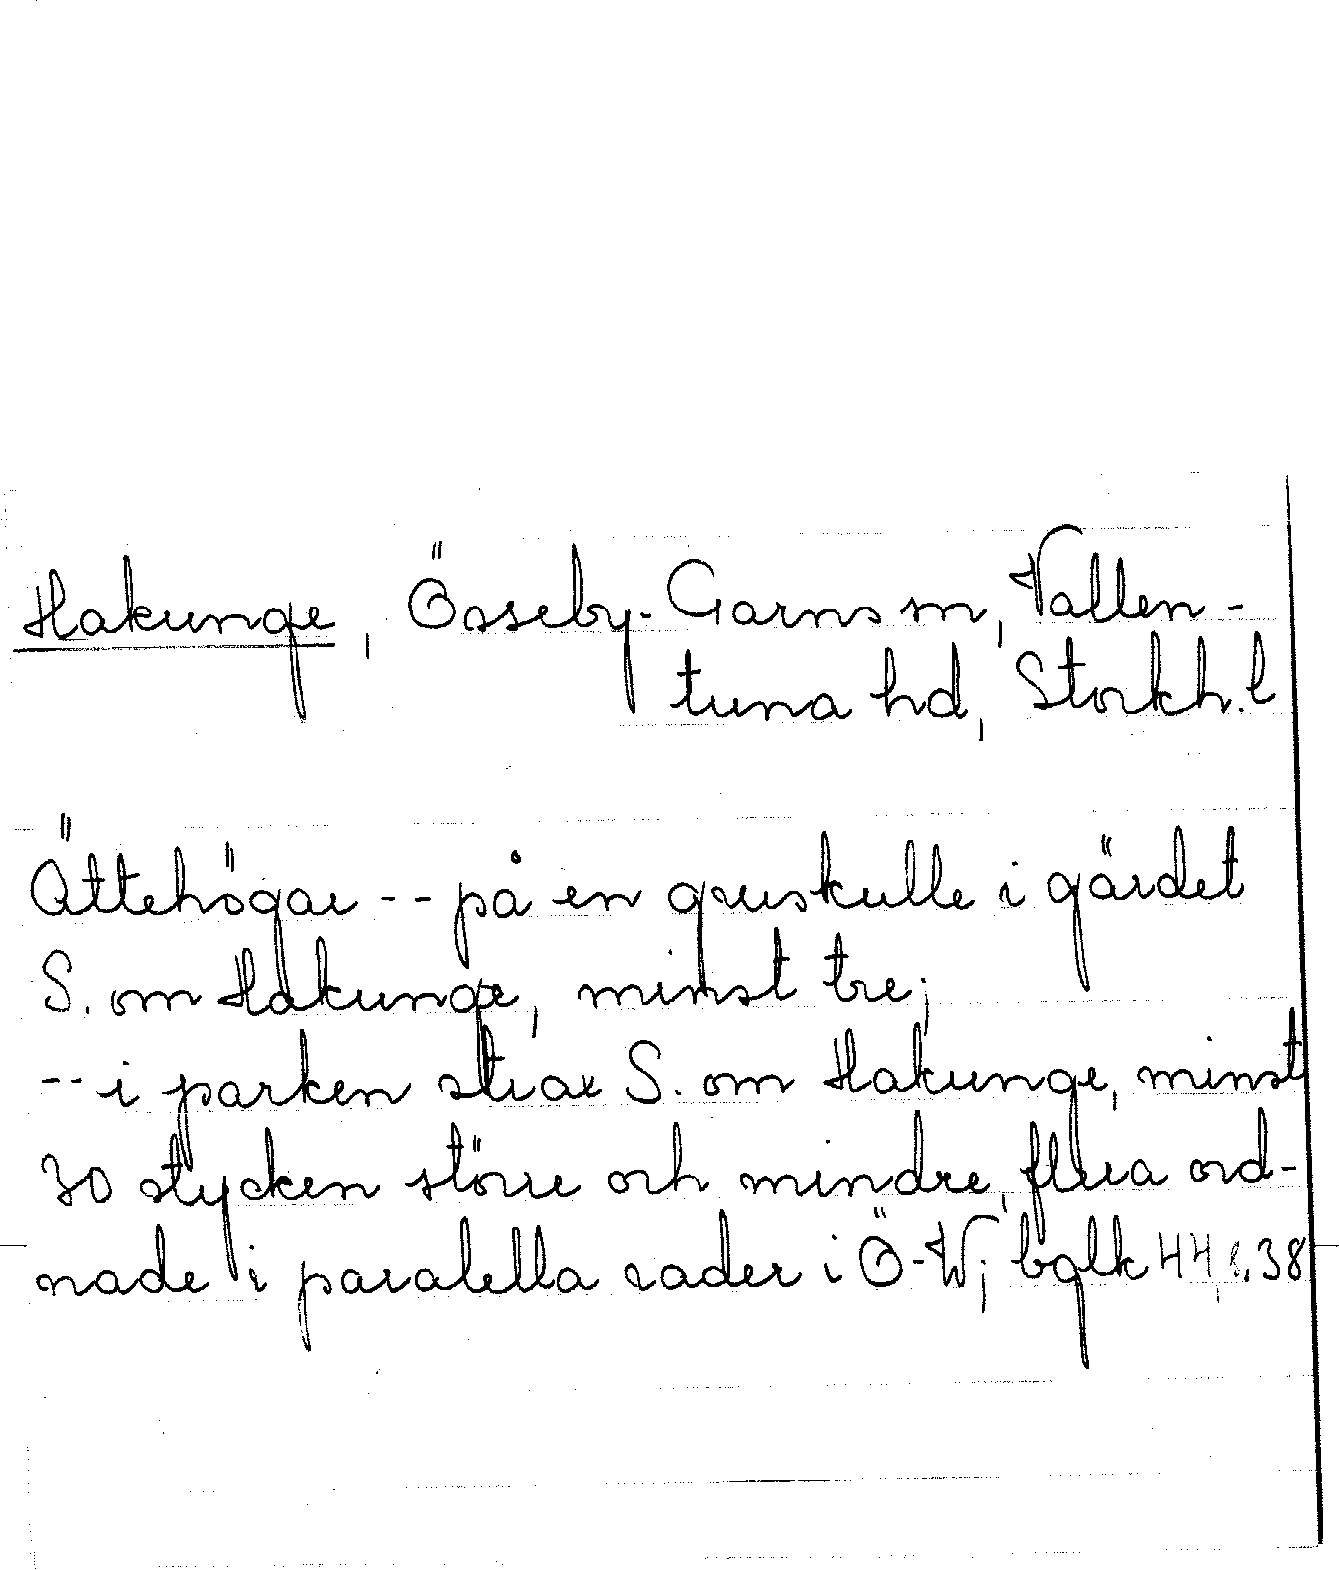 Hakunge, Össeby-Garns sn, Vallen-
tuna hd, Stockh. l
Ättehögar -- på en gruskulle i gärdet
S. om Hakunge, minst tre;
-- i parken strax S. om Hakunge, minst
30 stycken större och mindre, flera ord-
nade i paralella rader i Ö-W; bglk 44 s. 38